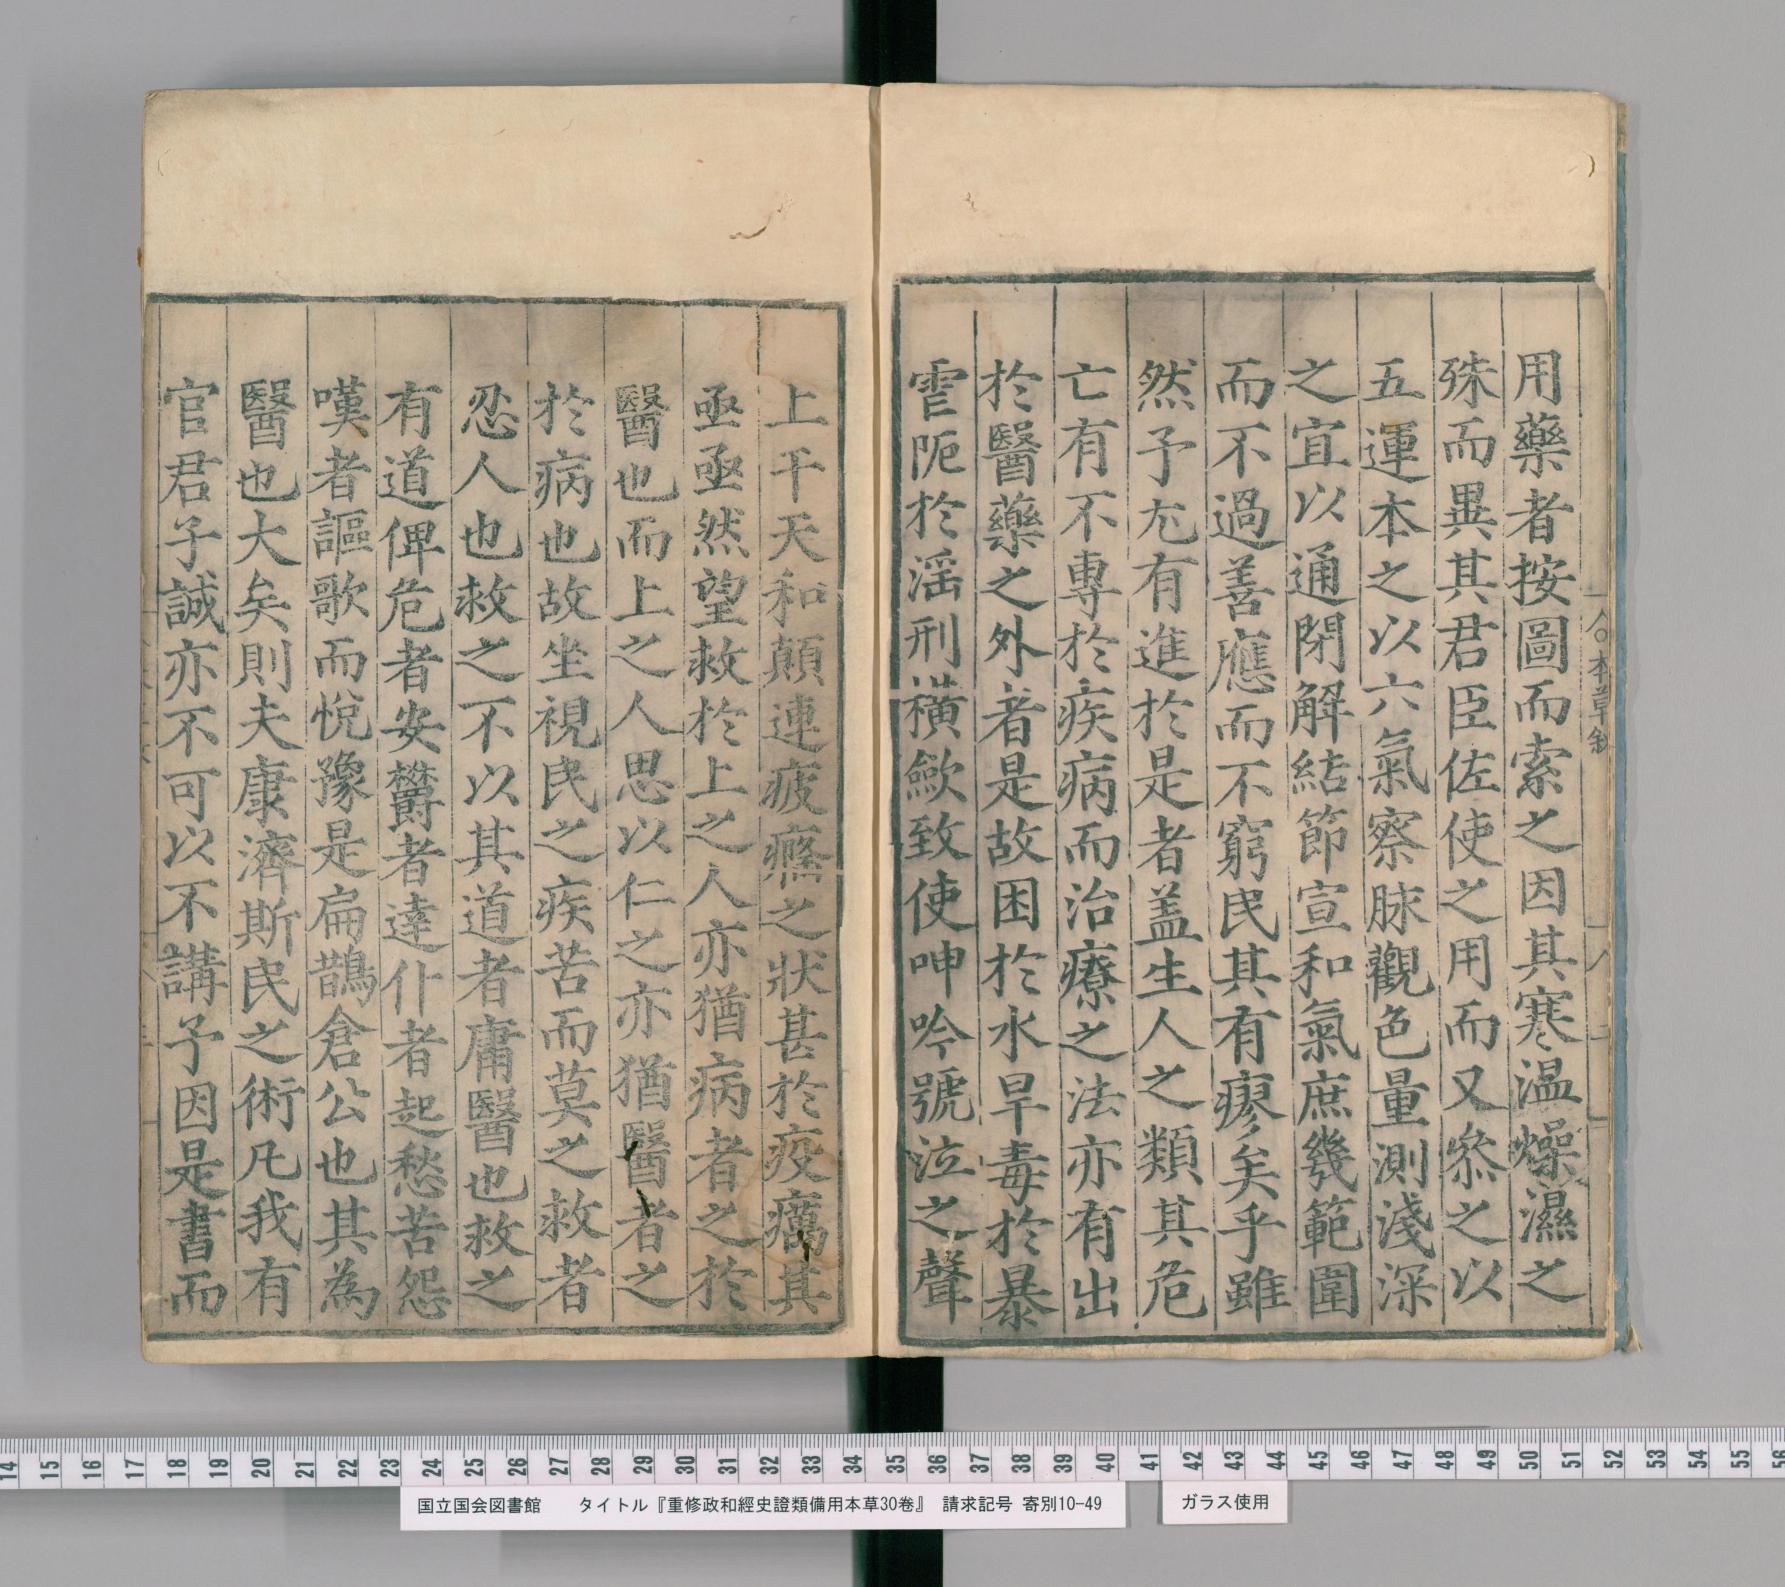 用藥者按圖而索之因其寒温燥濕之
殊而異其君臣佐使之用而又叅之以
五運本之以六氣察脉觀色量測淺深
之宜以通閉解結節宣和氣庶幾範圍
而不過善應而不窮民其有瘳矣乎雖
然予尤有進於是者盖生人之類其危
亡有不專於疾病而治療之法亦有出
於醫藥之外者是故困於水旱毒於暴
雪阨於淫刑横歛致使呻吟號泣之聲
上干天和顛連疲癃之狀甚於疫癘其
亟亟然望救於上之人亦猶病者之於
醫也而上之人思以仁之亦猶醫者之
於病也故坐視民之疾苦而莫之救者
忍人也救之不以其道者庸醫也救之
有道俾危者安欝者達仆者起愁苦怨
嘆者謳歌而悦豫是扁鵲倉公也其為
醫也大矣則夫康濟斯民之術凡我有
官君子誠亦不可以不講予因是書而
本草
國立国会図書館 タイトル『重修政和經史證類備用本草30巻』 請求記号 寄別10-49
ガラス使用
14 15 16 17 18 19 20 21 22 23 24 25 26 27 28 29 30 31 32 33 34 35 36 37 38 39 40 41 42 43 44 45 46 47 48 49 50 51 52 53 54 55 56